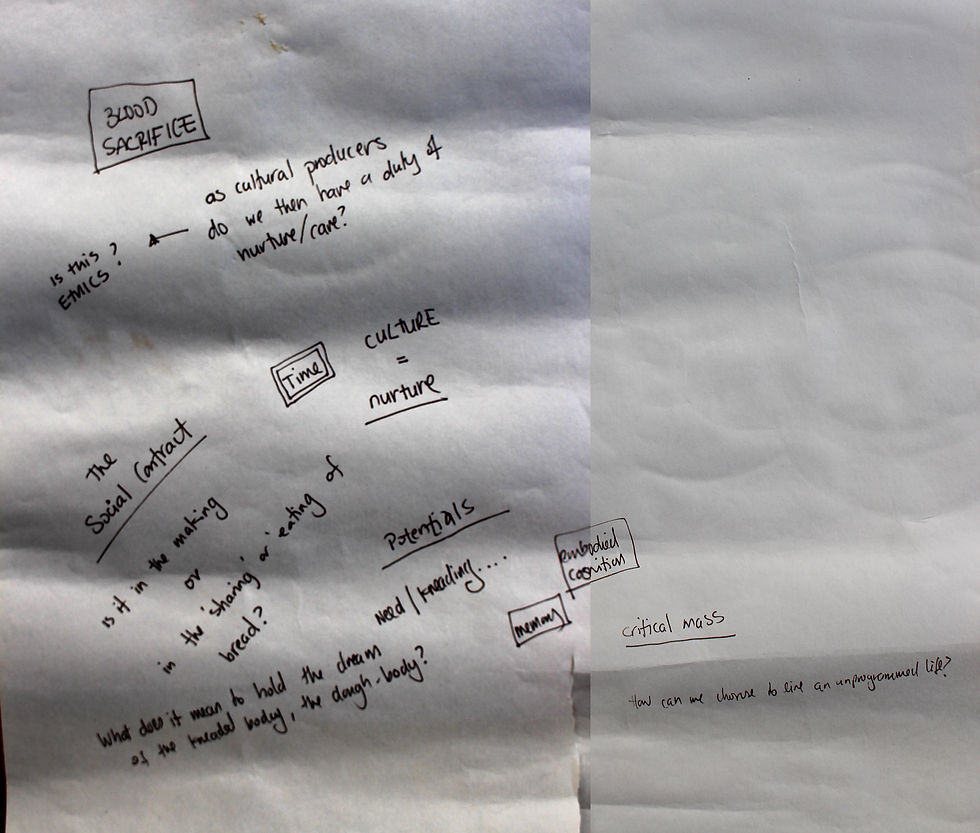 BLOOD
SACRIFICE
as cultural producers
do we then have a duty of
nurture/care?
is this ?
ETHICS ?
Time
CULTURE
=
nurture
The
Social Contract
is it in the making
or
in the 'sharing' or 'eating of
bread?
Potentials
need/kneading...
embodied
cognition
memory
What does it mean to hold the dream
of the kneaded body, the dough-body?
critical mass
How can we choose to live an unprogrammed life?